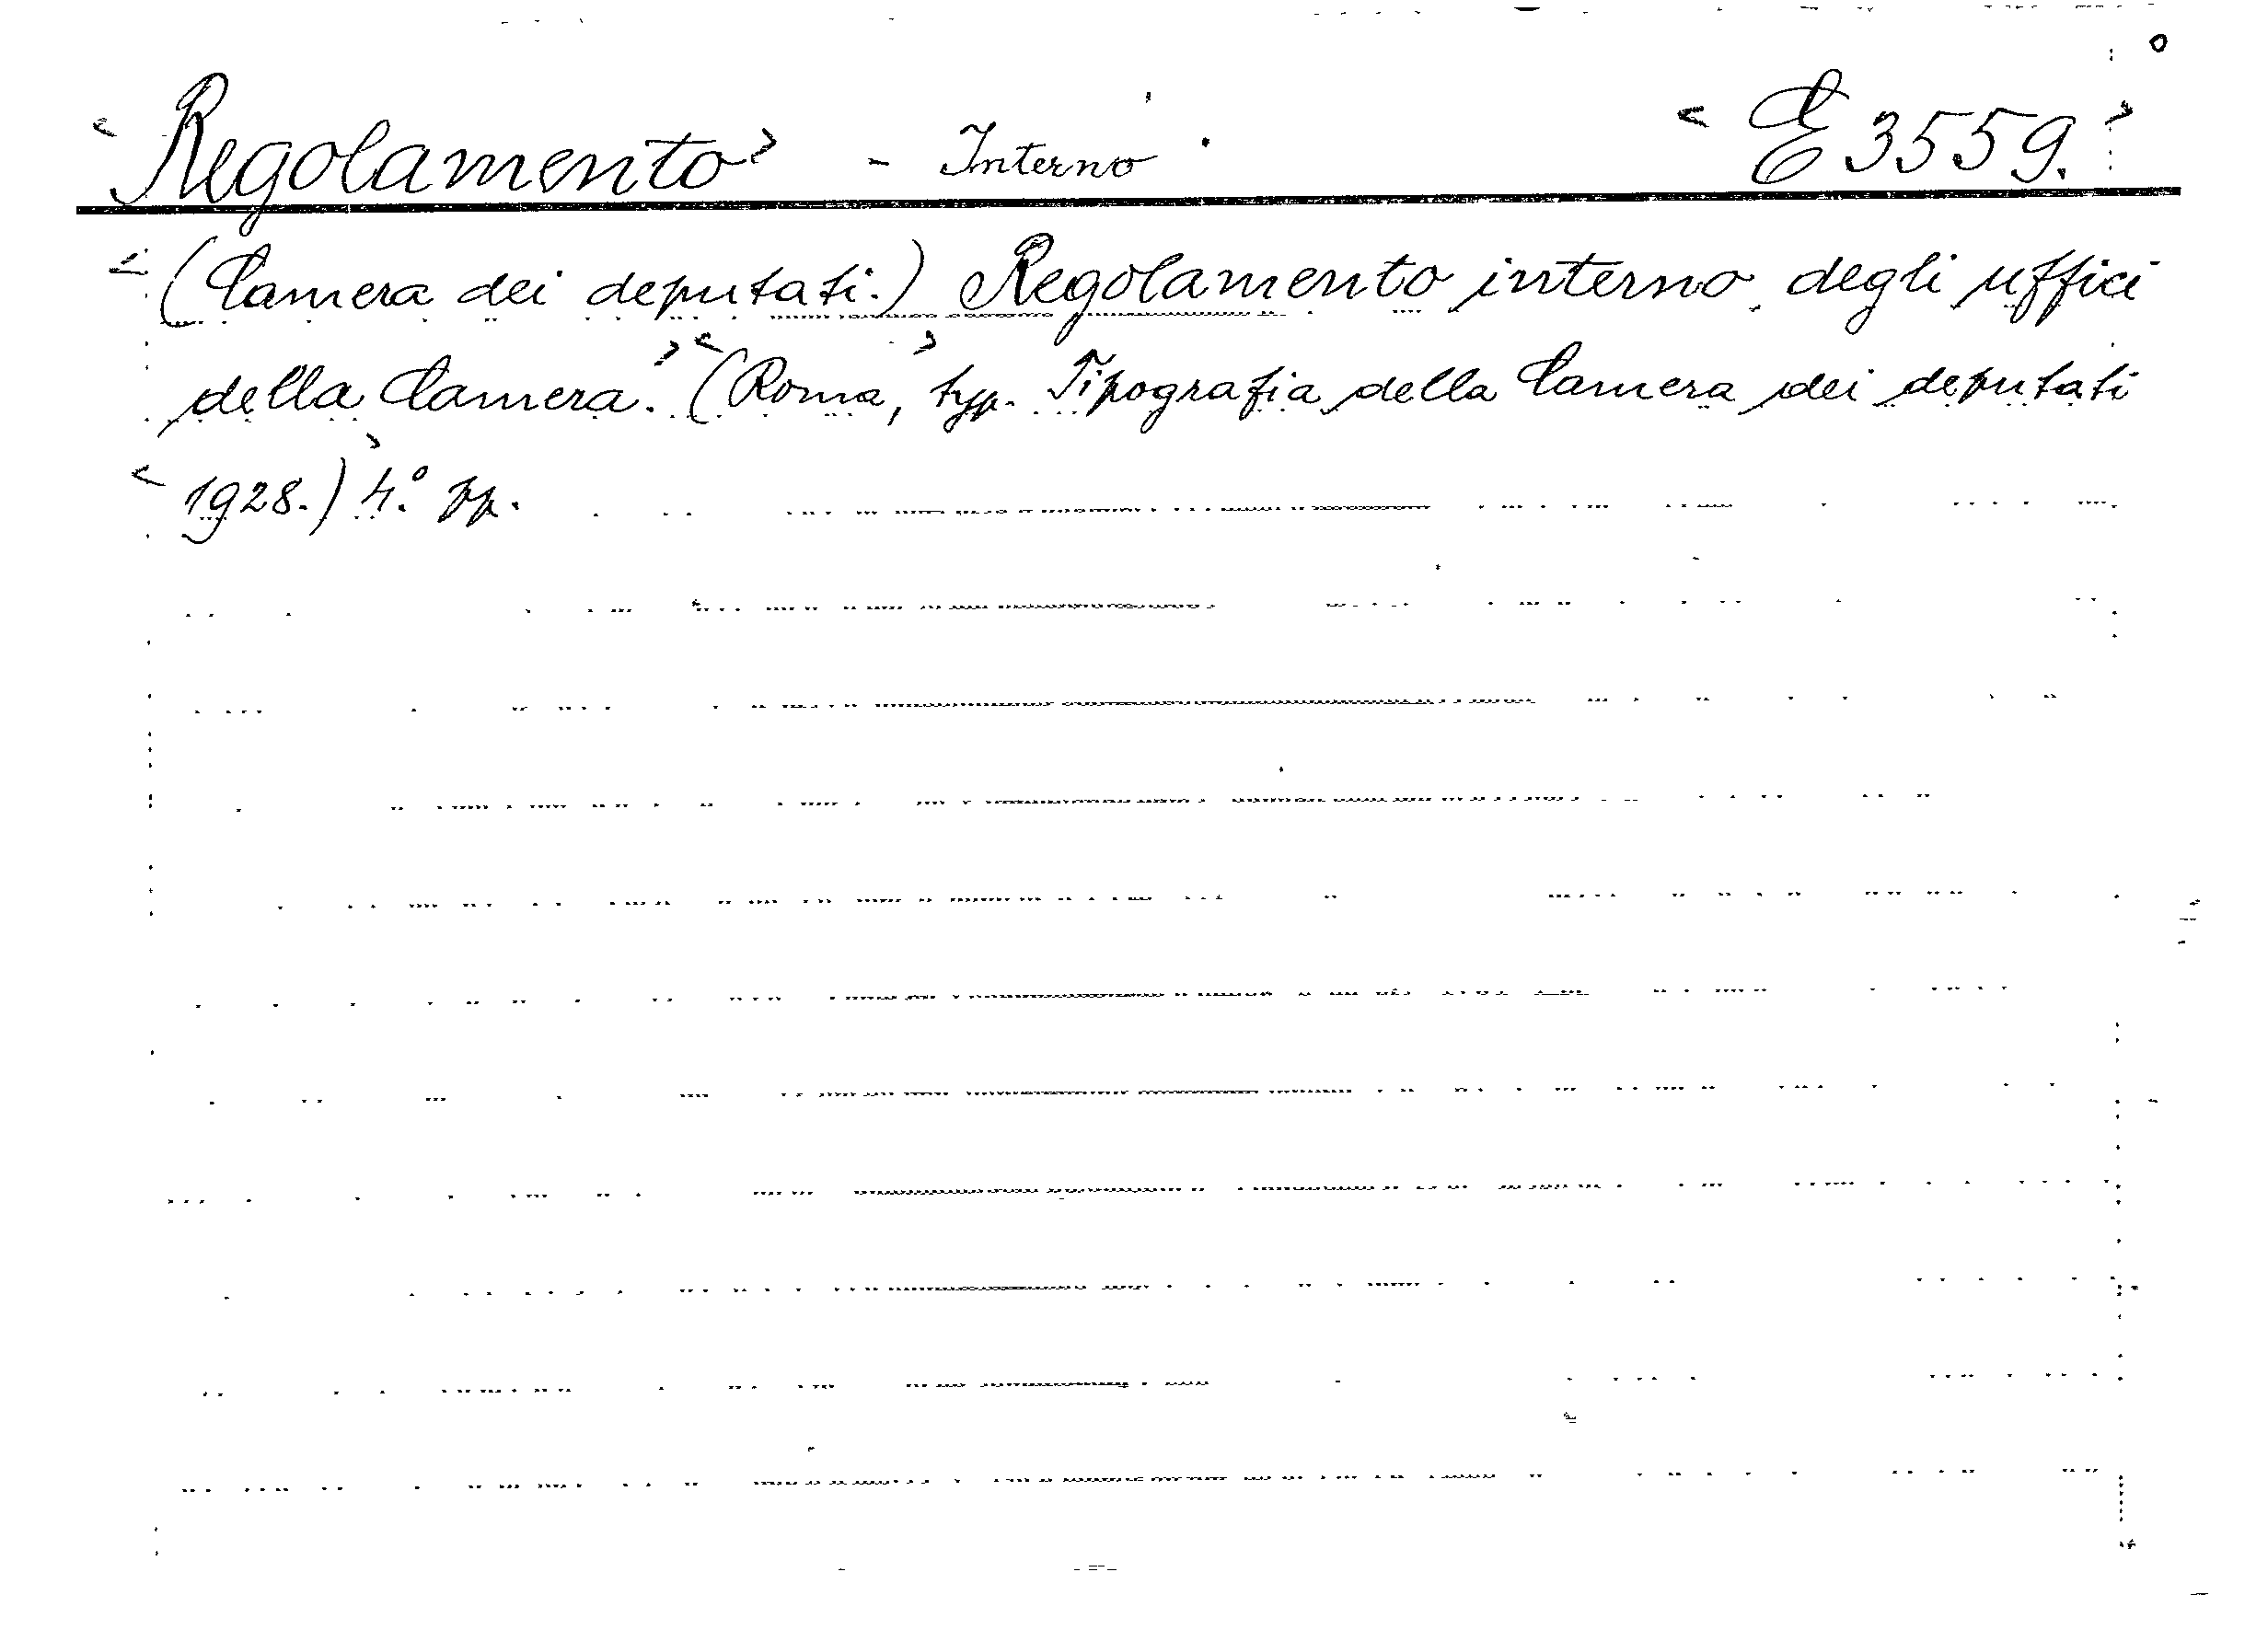 < Regolamento > - Interno . < E 3559. >
< (Camera dei deputati.) Regolamento interno degli uffici
della Camera. > < (Roma, > typ. Tipografia della Camera dei deputati
< 1928.) > 4.° pp.